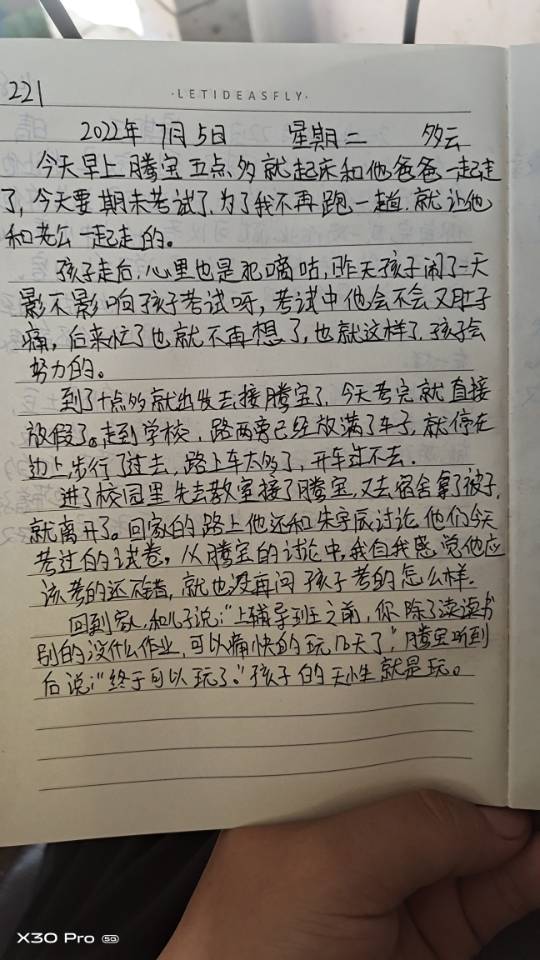 221
·LETIDEASFLY·
2022年 7月5日 星期二 多云
今天早上腾宝五点多就起床和他爸爸一起走
了,今天要期末考试了,为了我不再跑一趟.就让他
和老公一起走的。
孩子走后,心里也是犯嘀咕,昨天孩子闹了一天
影不影响孩子考试呀,考试中他会不会又肚子
痛,后来忙了也就不再想了,也就这样了,孩子会
努力的。
到了十点多就出发去接腾宝了,今天考完就直接
放假了。走到学校,路两旁已经放满了车子,就停在
边上,步行了过去,路上车太多了,开车过不去.
进了校园里先去教室接了腾宝,又去宿舍拿了被子,
就离开了。回家的路上他还和朱宇辰讨论他们今天
考过的试卷,从腾宝的讨论中,我自我感觉他应
该考的还不错,就也没再问孩子考的怎么样.
回到家,和儿子说:"上辅导班之前,你除了读读书
别的没什么作业,可以痛快的玩几天了",腾宝听到
后说:"终于可以玩了。"孩子的天性就是玩。
X30 Pro 5G